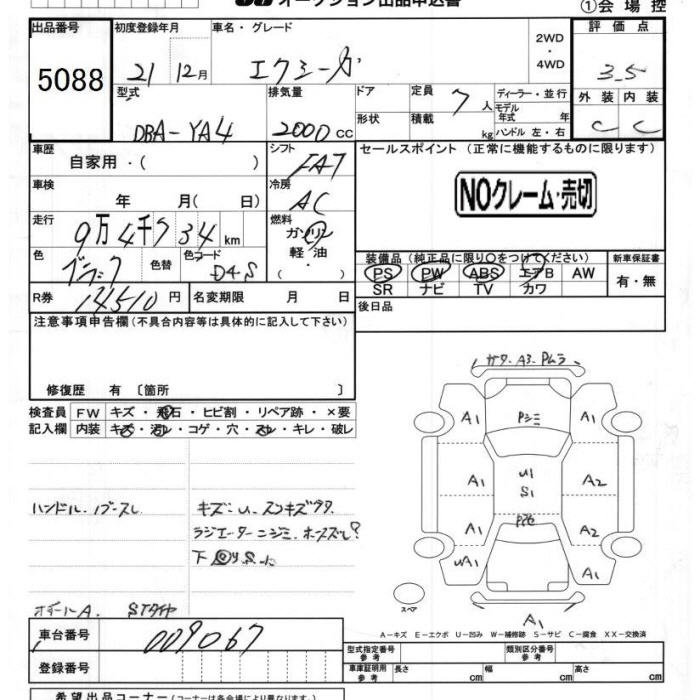 オークション出品申込書
①会場控
出品番号 初度登録年月 車名・グレード 2WD・4WD 評価点
5088 21 12月 エクシーガ 3.5
型式 排気量 ドア 定員 7人 ディーラー・並行 外装 内装
DBA-YA4 2000cc 形状 積載 kg モデル年式 年 ハンドル 左・右 C C
車歴 シフト セールスポイント (正常に機能するものに限ります)
自家用・( ) FAT
車検 冷房 NOクレーム・売切
年 月( 日) AC
走行 燃料
9万4千734km ガソリン
軽油
・( )
色 色替 色コード 装備品(純正品に限り○をつけてください) 新車保証書
ブラック D4S PS PW ABS エアB AW 有・無
SR ナビ TV カワ
R券 14510円 名変期限 月 日 後日品
注意事項申告欄(不具合内容等は具体的に記入して下さい)
修復歴 有 〔箇所 〕
検査員 FW キズ・飛石・ヒビ割・リペア跡・×要
記入欄 内装 キズ・汚レ・コゲ・穴・スレ・キレ・破レ
A1 Pシミ A1
A1 U1 A2
S1
A1 A2
UA1 A1
A1
スペア
ハンドル・ノブスレ キズ・U・スキズ
ラジエーターニジミ・ホースズレ?
下
A. STタイヤ
A-キズ E-エクボ U-凹み W-補修跡 S-サビ C-腐食 XX-交換済
車台番号 009067
型式指定番号 参考 類別区分番号 参考
登録番号 車庫証明用 参考 長さ cm 幅 cm 高さ cm
希望出品コーナー(コースは各会場により異なります)